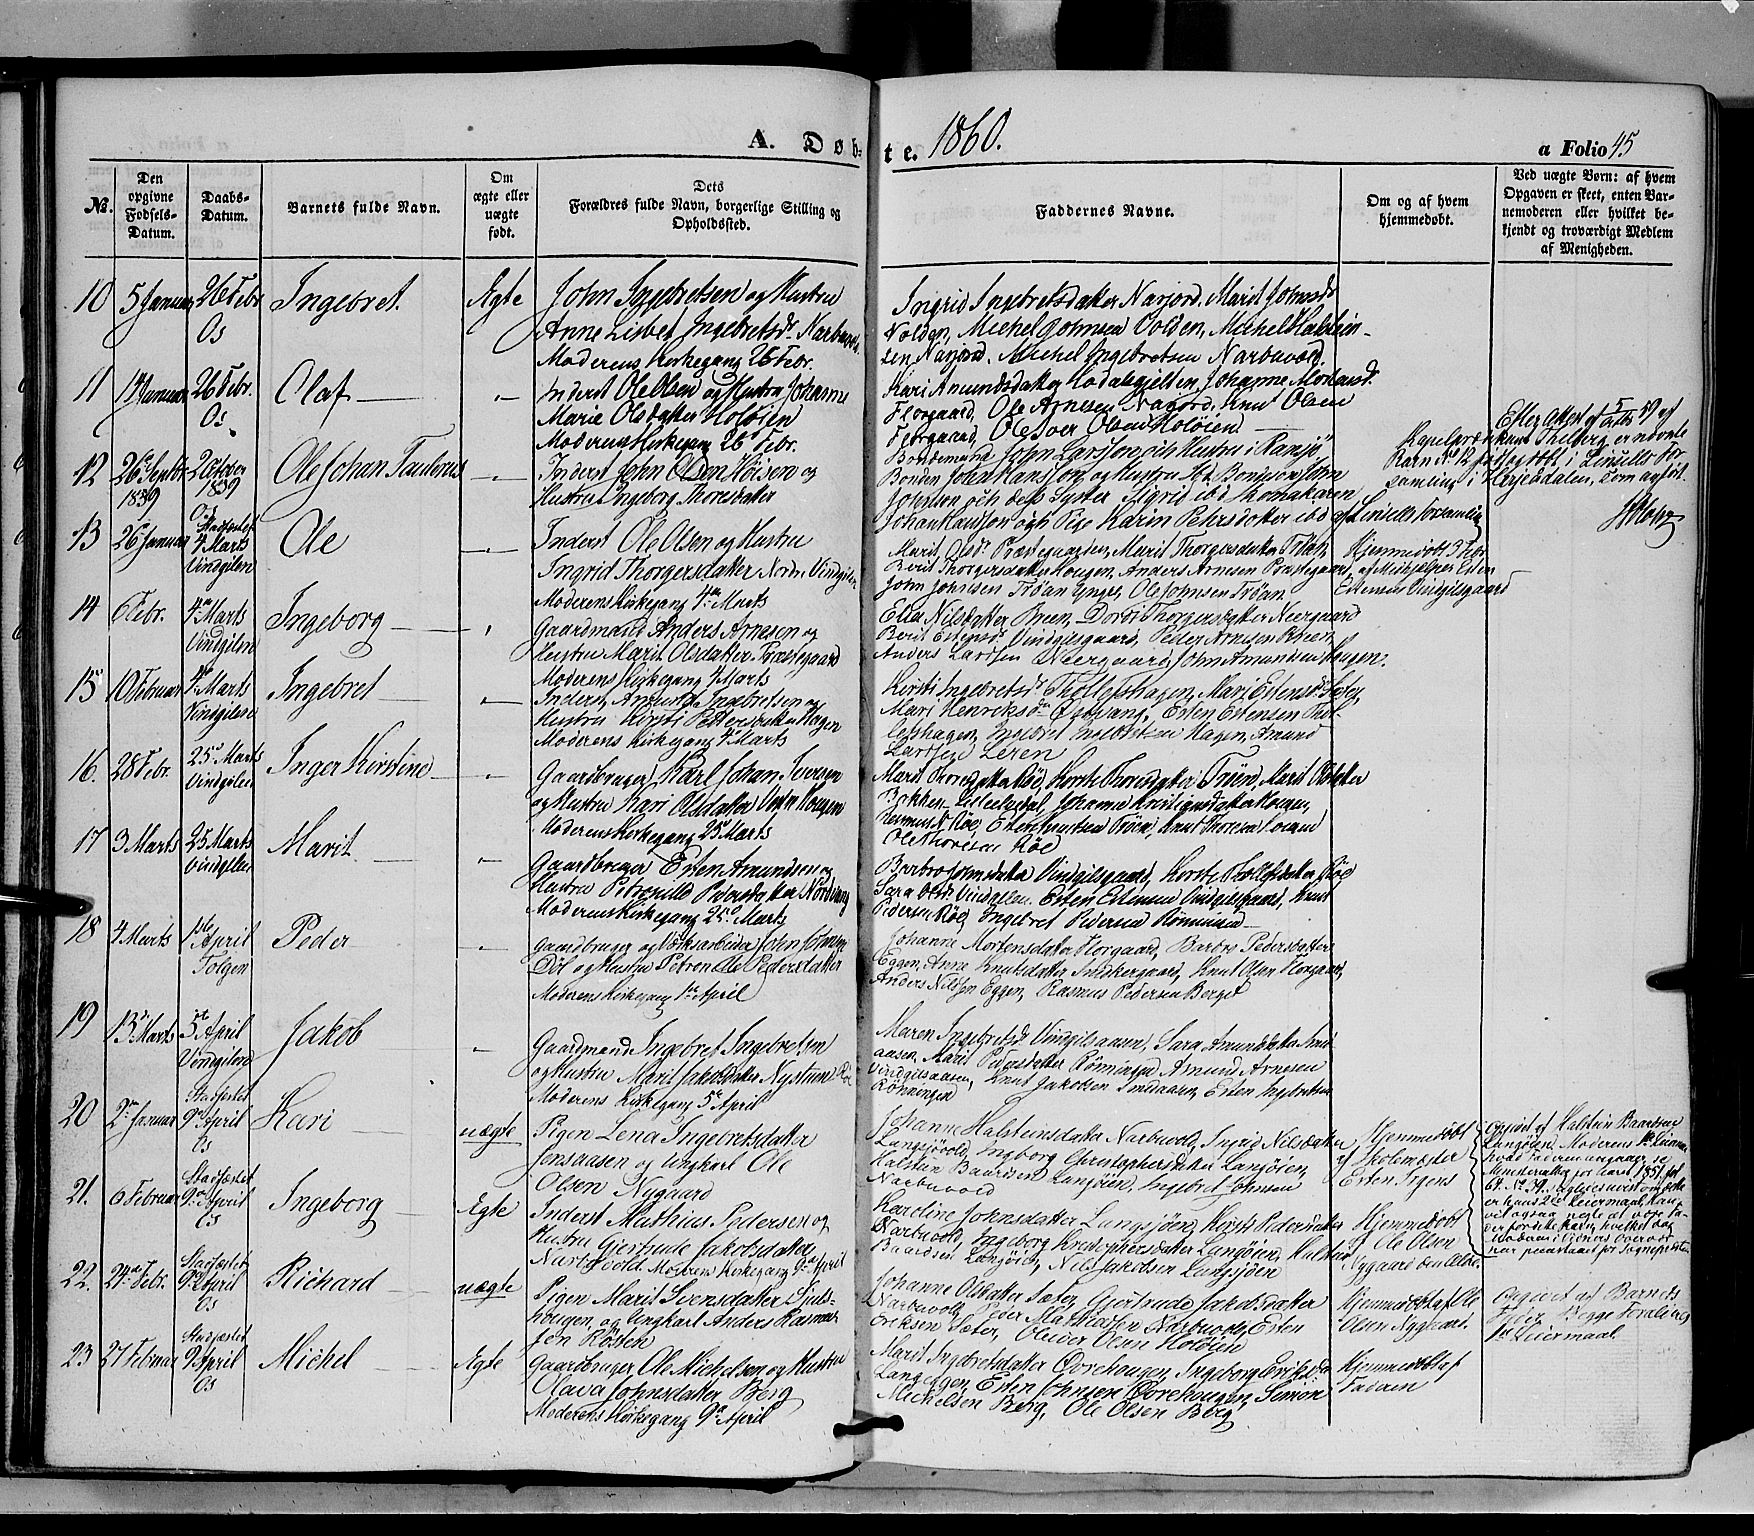 A. Døb-
te. 1860.
a Folio 45
No.
Den opgivne Fødsels-Datum.
Daabs-Datum.
Barnets fulde Navn.
Om ægte eller uægte født.
Dets Forældres fulde Navn, borgerlige Stilling og Opholdssted.
Faddernes Navne.
Om og af hvem hjemmedøbt.
Ved uægte Børn: af hvem Opgaven er skeet, enten Barnemoderen eller hvilket bekjendt og troværdigt Medlem af Menigheden.
10 5 Januar 26 Febr. Os Ingebret. Ægte
John Ingebretsen og Hustru
Anne Lisbet Ingebretsdr. Narbuvold.
Moderens Kirkegang 26 Febr.
Ingrid Ingebretsdatter Narjord, Marit Johnsdr
Volden, Michel Johnsen Volden, Michel Halstein-
sen Narjord. Michel Ingebretsen Narbuvold.
11 Januar 26 Febr. Os Olaf
Inderst Ole Olsen og Hustru Johanne
Marie Olsdatter Holøien
Moderens Kirkegang 26 Febr.
Kari Amundsdatter Johanne
Florgaard, Ole Arnesen Narjord, Knut Olsen
Florgaard, Ole Olsen Holøien
12 26 Septbr 1839 October 1839 Ole Johan Paulenus
Inderst John Olsen Høisen og
Hustru Ingeborg Thoresdatter
Bondemand John Larsson och Hustru i Ransjö
Bonden Johan Hansson och Hustru ibd. Bonden John
Johnsen och dess Syster Sigrid ibd.
Johan Hansson och Pige Karin Pehrsdotter ibd af Linsells Forsamling
Efter Attest af 59 af
Kapelpredikant Thelberg er nævnte
Barn No. 12 født og døbt i Linsells For-
samling i Herjedalen, som anført.
13 26 Januar Os Stadfæstet 4 Marts Vindgilen Ole
Inderst Ole Olsen og Hustru
Ingrid Thorgersdatter Nordre Vindgilen
Moderens Kirkegang 4de Marts
Marit Olsdr. Præstegaarden, Marit Thorgersdatter Trøen,
Berit Thorgersdatter Hougen, Anders Arnesen Præstegaard,
John Johnsen Trøan Yngre, Ole Johnsen Trøan
Hjemmedøbt 3 Febr.
af Medhjelper Esten
Estensen Vindgilsgaard
14 6 Febr. 4de Marts Vindgilen Ingeborg
Gaardmand Anders Arnesen og
Hustru Marit Olsdatter Præstegaard
Moderens Kirkegang 4 Marts
Eli Nilsdatter Breen, Dorti Thorgersdatter Neergaard
Berit Estensdr Vindgilsgaard, Peder Arnesen
Anders Larssen Neergaard, John Amundsen Hougen.
15 10 Februar 4de Marts Vindgilen Ingebret
Inderst Amund Ingebretsen og
Hustru Kirsti Pettersdatter Hagen
Moderens Kirkegang 4de Marts
Kirsti Ingebretsdr. Thollefshagen, Mari Estensdr.
Mari Henriksdr Østvang, Esten Estensen Thol-
lefshagen, Ingebret Hagen, Amund
Larssen Leren
16. 28 Febr. 25de Marts Vindgilen Inger Kirstine
Gaardbruger Karl Johan Iversen
og Hustru Kari Olsdatter Hougen
Moderens Kirkegang 25de Marts
Marit Thoresdatter Røe, Kirsti Thoresdatter Trøen, Marit Olsdatter
Bakken Johanne Kristiansdatter
Rasmus Røe, Esten Knutsen Trøen, Knut Thoresen
Ole Thoresen Røe
17 3 Marts 25 Marts Vindgilen Marit
Gaardbruger Esten Amundsen og
Hustru Petronille Pedersdatter Nordvang
Moderens Kirkegang 25de Marts
Barbro Johnsdatter Vindgilsgaard, Kirsti Tholefsdatter Røe
Sara Olsdr. Vindgilen. Esten Estensen Vindgilsgaard, Knut
Pedersen Røe, Ingebret Pedersen Rønningen
18 4 Marts 1ste April Tolgen Peder
Gaardbruger og Værksarbeider John Johnsen
Döl og Hustru Petronelle Pedersdatter
Moderens Kirkegang 1ste April
Johanne Mortensdatter Florgaard, Barbro Pedersdatter
Eggen, Anne Knutsdatter Snedkergaard, Knut Olsen Florgaard,
Anders Nilssen Eggen, Rasmus Pedersen Berget
19 13de Marts 5te April Vindgilen Jakob
Gaardmand Ingebret Ingebretsen
og Hustru Marit Jakobsdatter Nystuen
Moderens Kirkegang 5te April
Maren Ingebretsdr. Vindgilsaasen, Sara Amundsdatter
aasen, Marit Pedersdatter Rønningen, Amund Arnesen
Vindgilsaasen, Knut Jakobsen Esten Ingebretsen
Rønningen
20 2den Januar Stadfæstet 9de April Os Kari uægte
Pigen Lena Ingebretsdatter
Jensaasen og Ungkarl Ole
Olsen Nygaard
Johanne Halsteinsdatter Narbuvold, Ingrid Nilsdatter
Langsjövold, Ingeborg Christophersdatter Langøien,
Halstein Baardsen Langøien, Ingebret Johnsen
Narbuvold
Hjemmedøbt
af Skolemester
Esten Irgens
Opgivet af Halstein Baardsen
Langøien. Moderens
hvad Faderen angaaer, se
Ministerialbog for Aaret 1851 fol.
64. No. 39.
21. 6 Februar Stadfæstet 9de April Os Ingeborg Ægte
Inderst Mathias Pedersen og
Hustru Gjertrude Jakobsdatter
Narbuvold Moderens Kirkegang 9de April
Karoline Johnsdatter Langsjöen, Kirsti Pedersdatter
Narbuvold, Ingeborg Kristophersdatter Langøien, Halstein
Baardsen Langøien, Nils Jakobsen Langsjöen
Hjemmedøbt
af Ole Olsen
Nygaard den Ældre.
22. 24de Febr. Stadfæstet 9de April Os Richard uægte
Pigen Marit Svensdatter
hougen, og Ungkarl Anders Rasmus-
sen Røsen
Johanne Olsdatter Sæter, Gjertrude Jakobsdatter
Narbuvold, Peder Mathiesen Narbuvold, Esten
Eriksen Sæter, Oliver Olsen Holøien
Hjemmedøbt af Ole
Olsen Nygaard.
Opgivet af Barnets
Fader. Begge Forældres
1ste Leiermaal.
23 27 Februar Stadfæstet 9 April Os Michel Ægte
Gaardbruger Ole Michelsen og Hustru
Olava Johnsdatter Berg
Moderens Kirkegang 9de April
Marit Ingebretsdatter Övrehougen, Ingeborg Eriksdr
Langeggen, Esten Johnsen Övrehougen, Simon
Michelsen Berg, Ole Olsen Berg
Hjemmedøbt af
Faderen